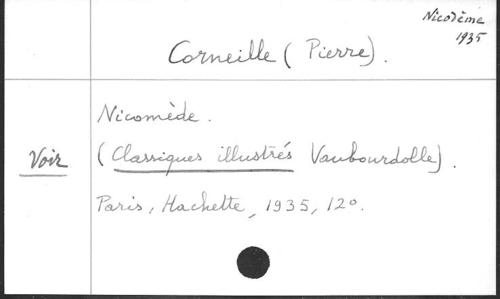 Nicodème
1935
Corneille (Pierre).
Nicomède.
Voir
(Classiques illustrés Vaubourdolle).
Paris, Hachette, 1935, 12°.